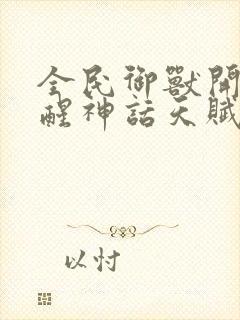 全民御獸開
醒神話天賦
以忖